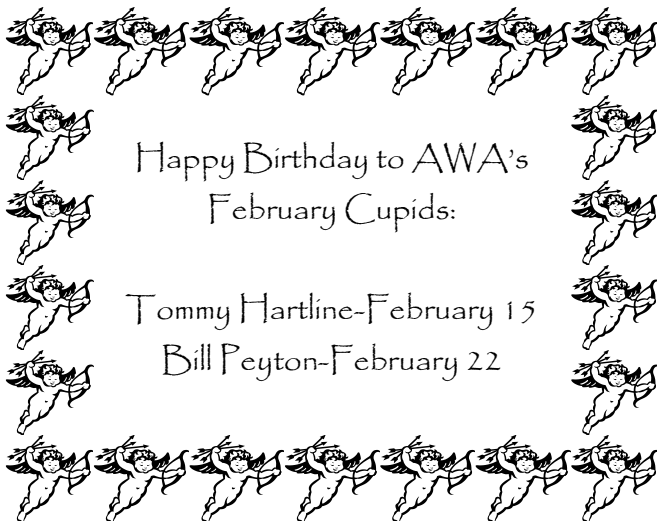 Happy Birthday to AWA's
February Cupids:
Tommy Hartline-February 15
Bill Peyton-February 22